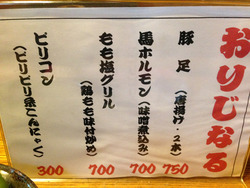 おりじなる
豚足(唐揚げ・2本) 750
馬ホルモン(味噌煮込み) 700
もも塩グリル(鶏もも味付炒め) 700
ピリコン(ピリピリ糸こんにゃく) 300